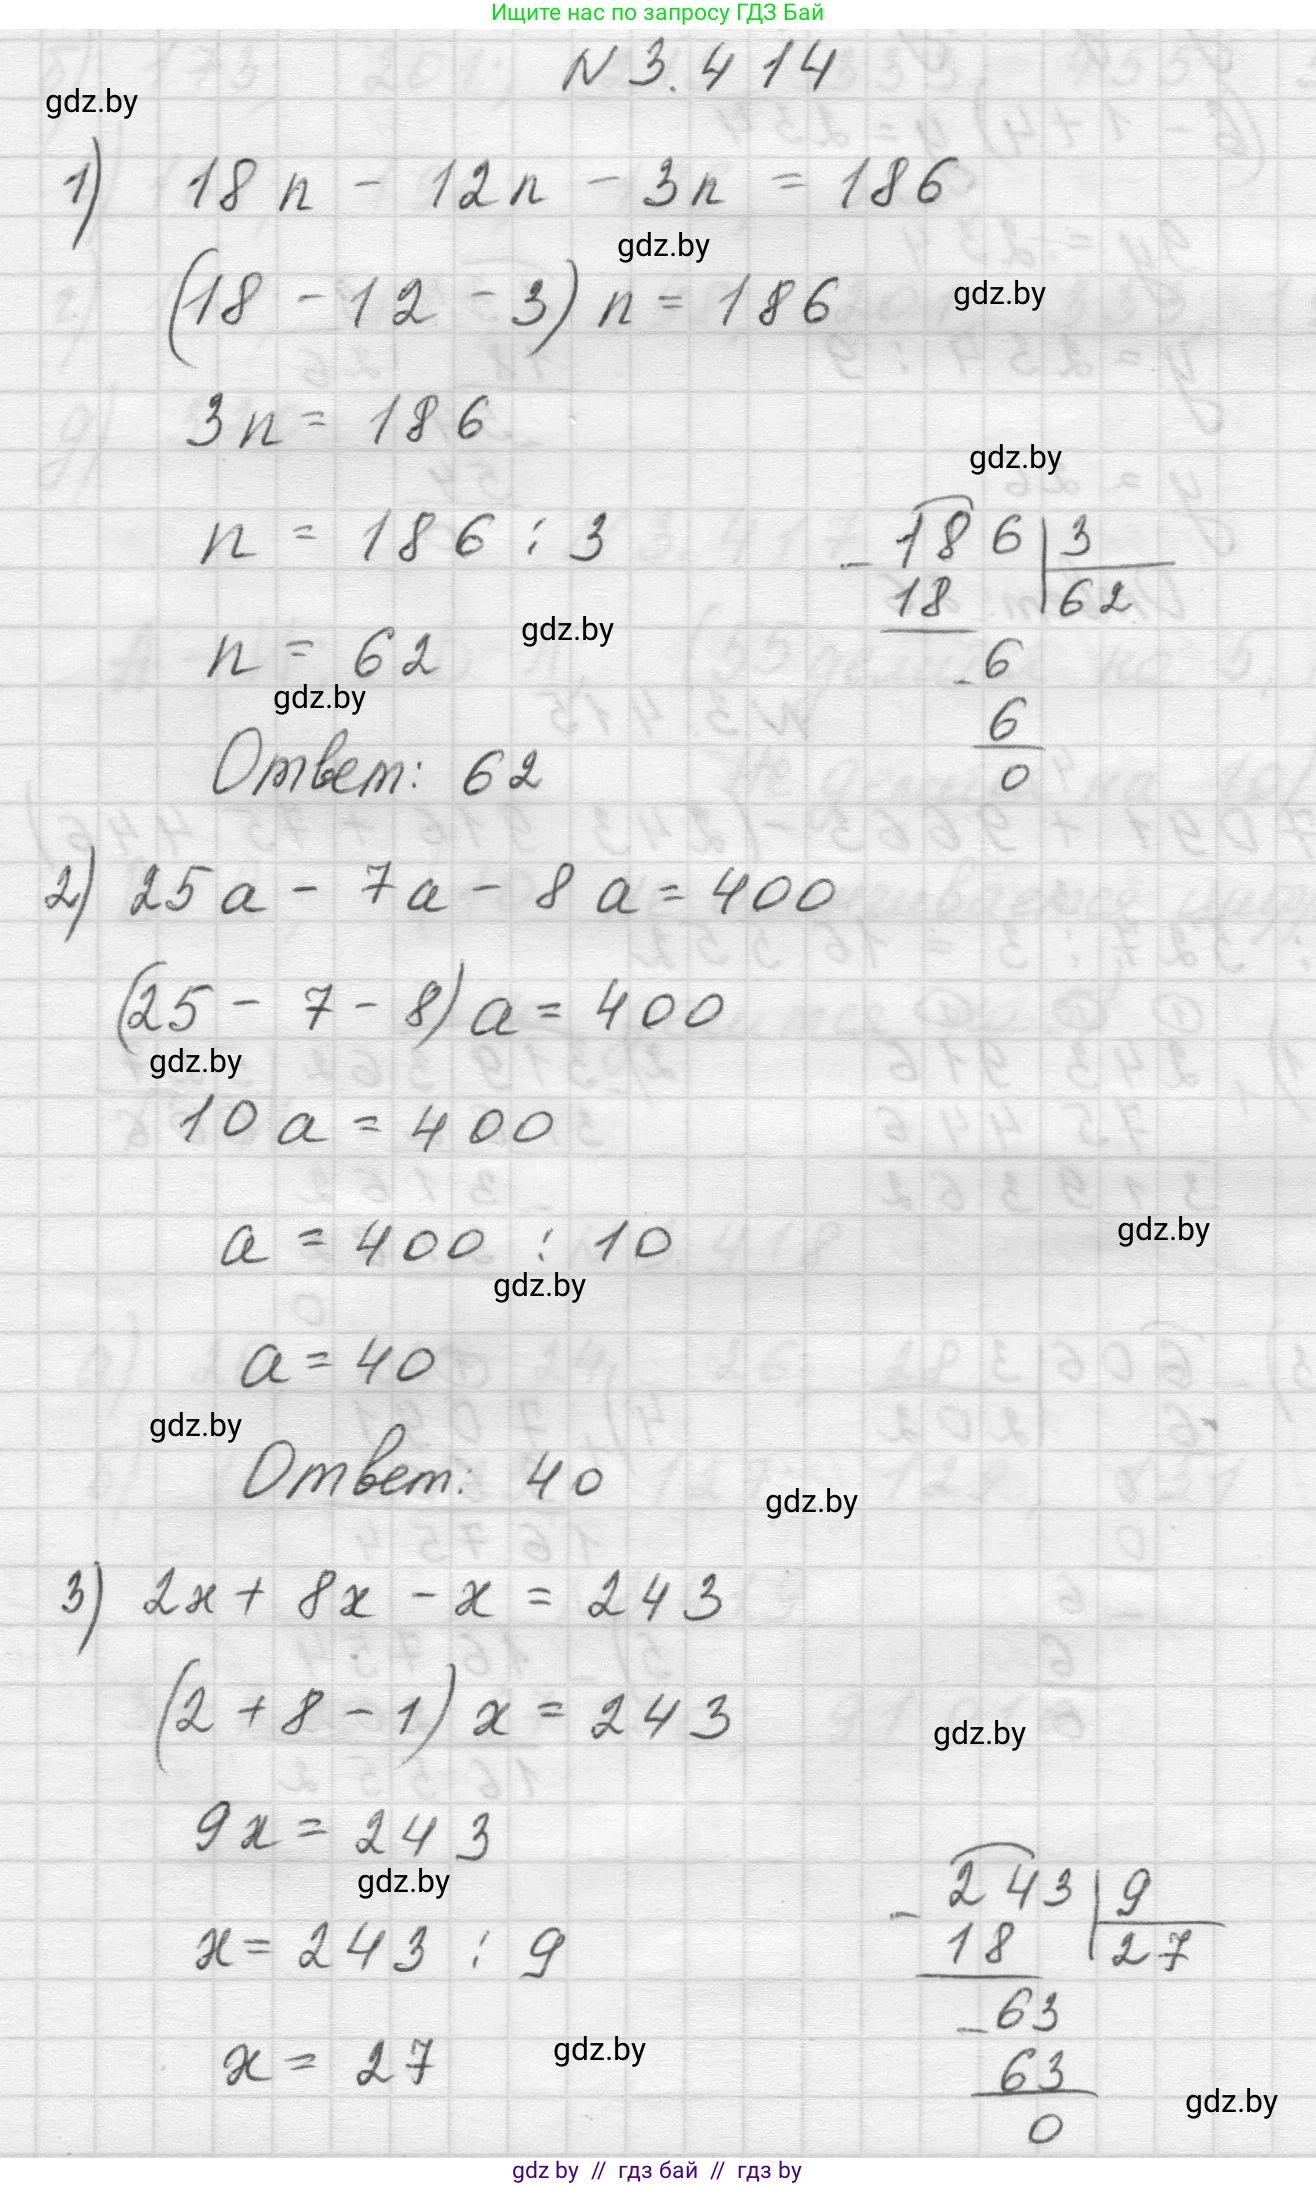 Ищите нас по запросу ГДЗ Бай
N 3.414
gdz.by
1) 18n - 12n - 3n = 186
gdz.by
(18 - 12 - 3) n = 186
gdz.by
3n = 186
gdz.by
n = 186 : 3
- 186 | 3
18 62
n = 62
gdz.by
- 6
gdz.by
6
Ответ: 62
0
2) 25a - 7a - 8a = 400
(25 - 7 - 8) a = 400
gdz.by
10a = 400
gdz.by
a = 400 : 10
gdz.by
a = 40
gdz.by
Ответ: 40
gdz.by
3) 2x + 8x - x = 243
(2 + 8 - 1) x = 243
gdz.by
9x = 243
gdz.by
- 243 | 9
x = 243 : 9
18 27
- 63
x = 27
gdz.by
63
gdz.by
0
gdz by // гдз бай // гдз by